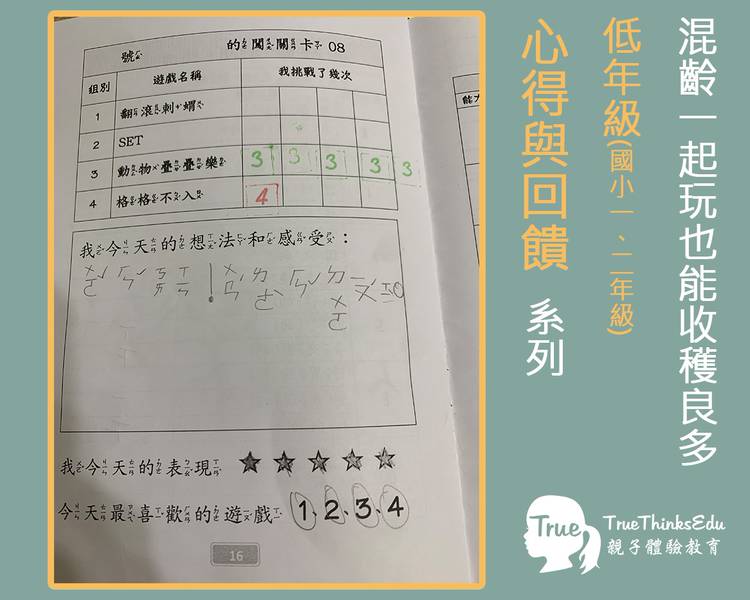 號 的闖關卡 08
組別 遊戲名稱 我挑戰了幾次
1 翻滾刺蝟
2 SET
3 動物疊疊樂 3 3 3 3 3
4 格格不入 4
我今天的想法和感受：
ㄨㄛˇ ㄏㄣˇ ㄎㄞ ㄒㄧㄣ !
我今天的表現 ★ ★ ★ ★ ★
今天最喜歡的遊戲 1、2、3、4
16
混齡一起玩也能收穫良多
低年級(國小一、二年級)
心得與回饋 系列
True
TrueThinksEdu
親子體驗教育